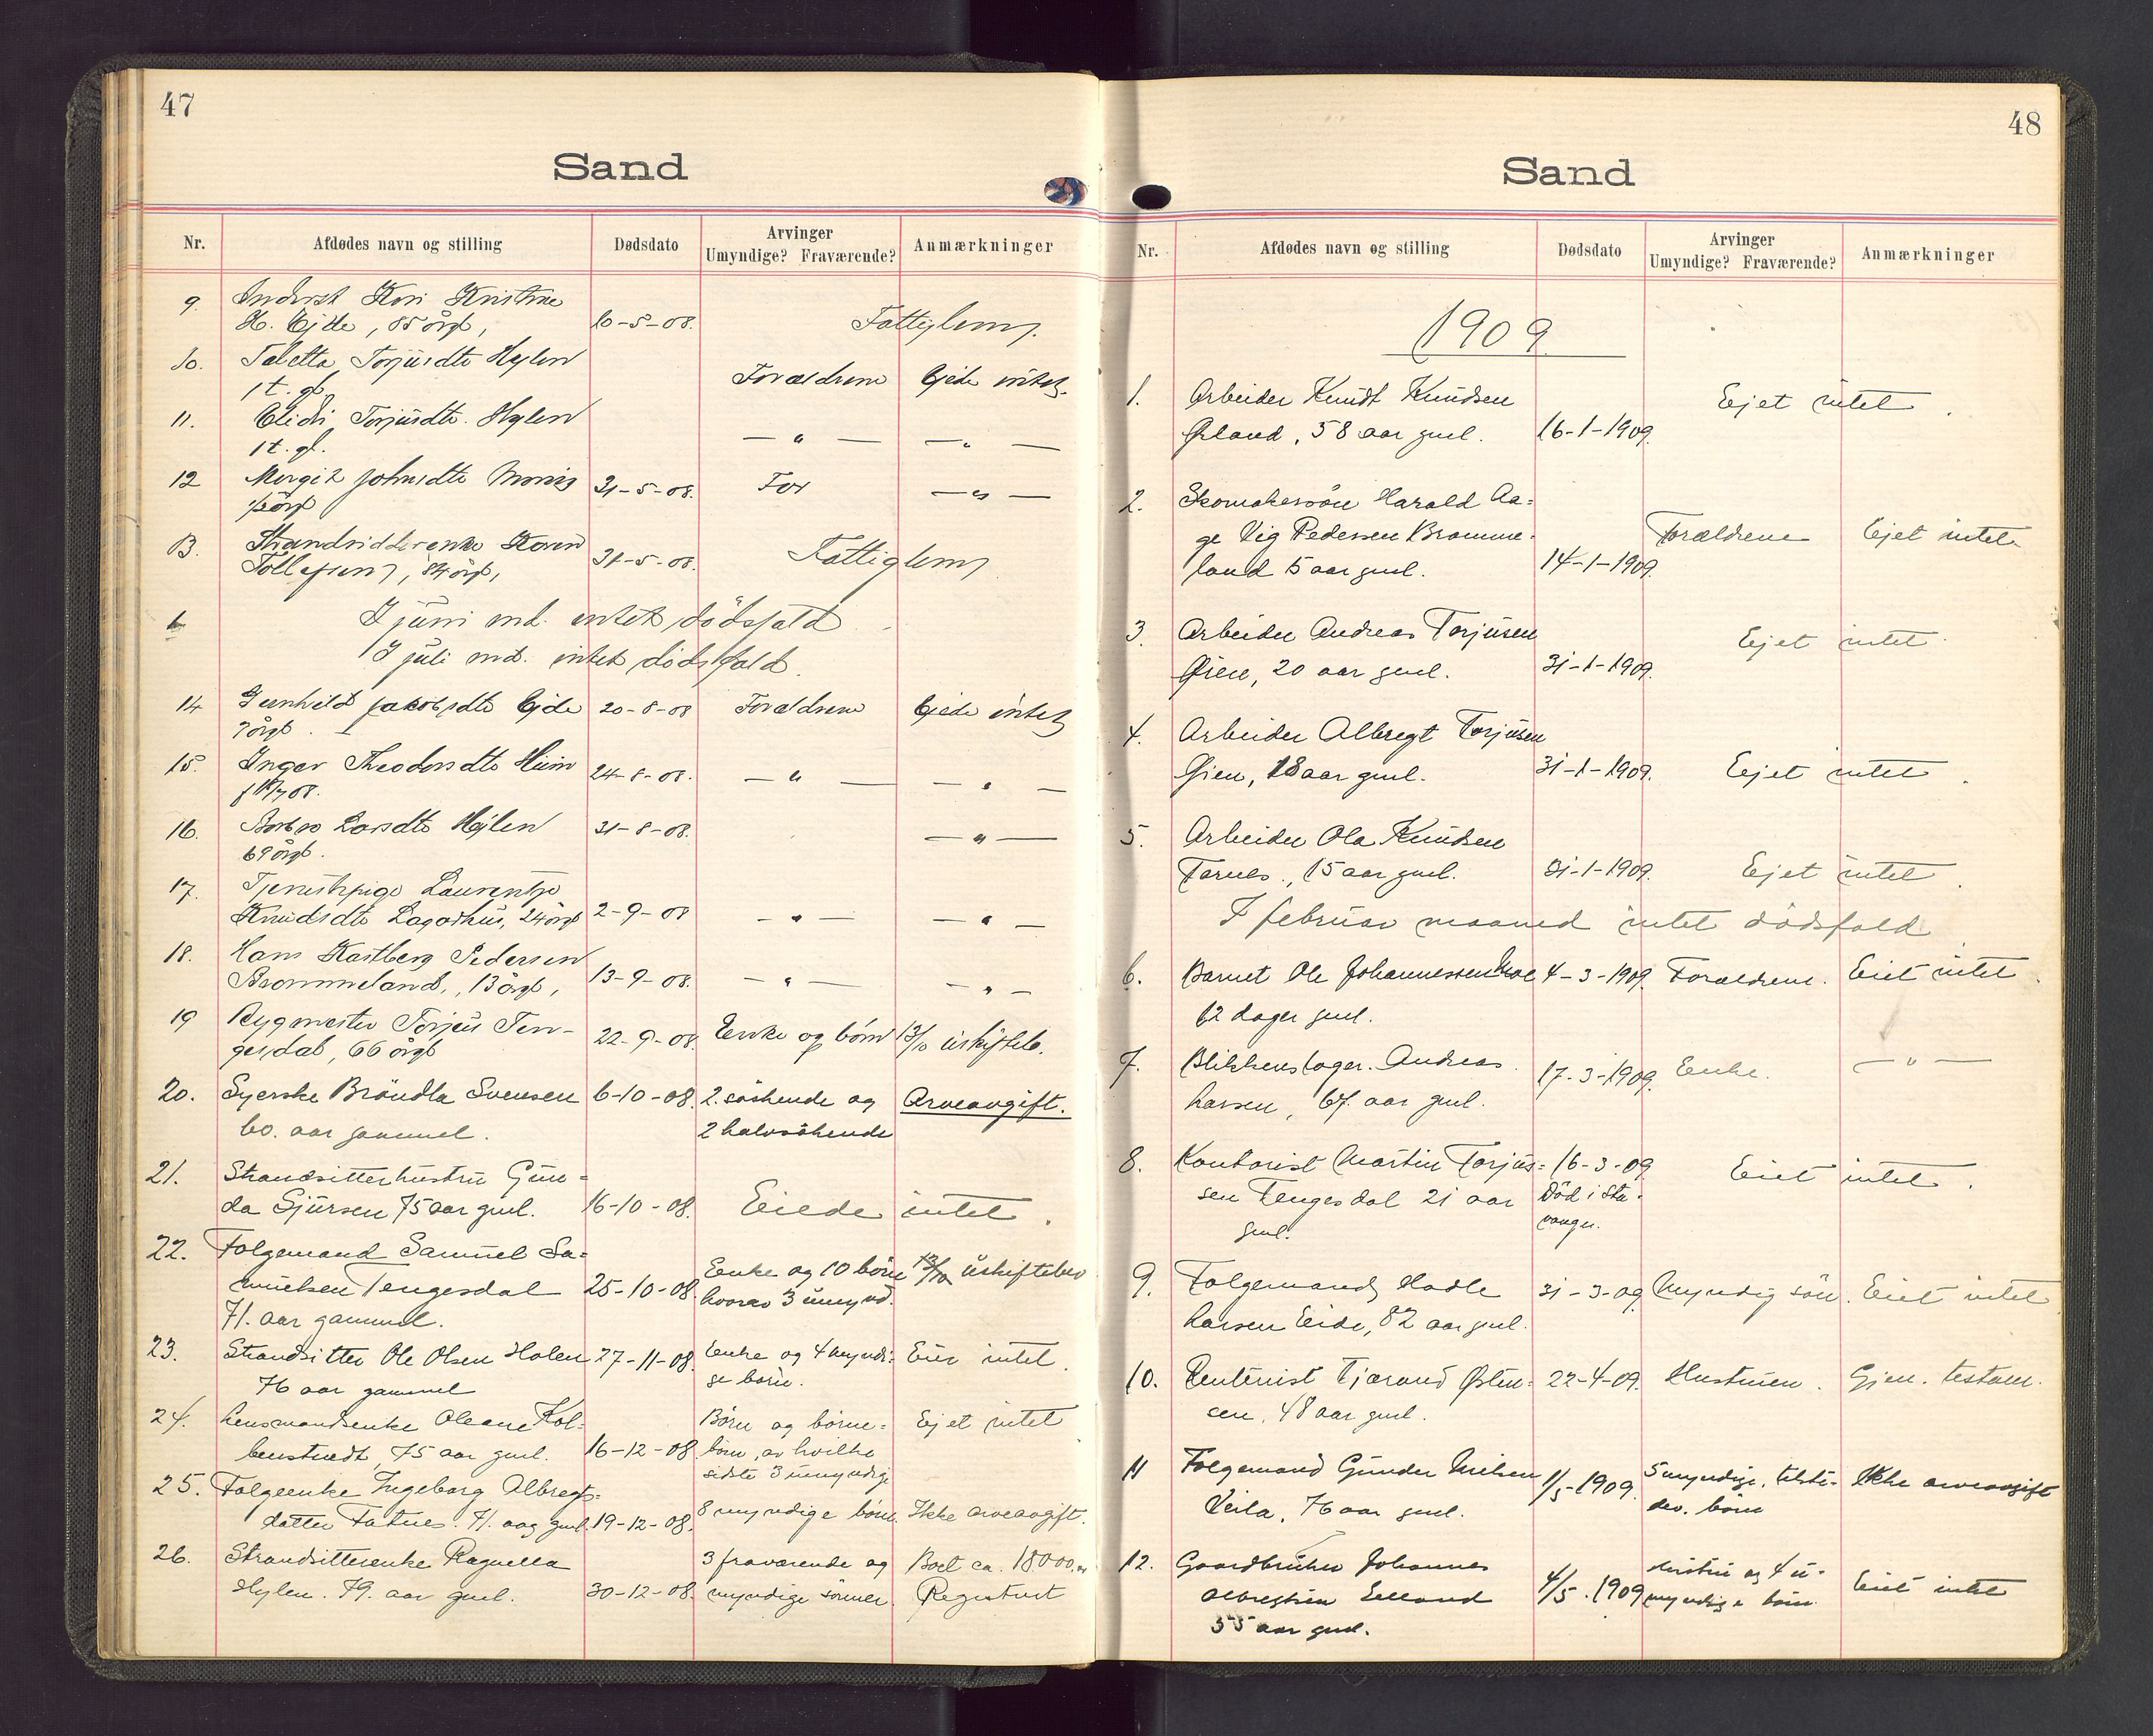 47
Sand
Nr.
Afdødes navn og stilling
Dødsdato
Arvinger
Umyndige? Fraværende?
Anmærkninger
9. Kari Kristine
H. Eide, 85 årgl, 10-5-08. Fattiglem
10. Tabetta Torjusdtr Hylen
1 t. gl. Forældrene Eiede intet
11. Torjusdtr. Hylen
1 t. gl. — " — — " —
12 Margit Johnsdtr 31-5-08. For — " —
½ årgl
13. Strandsidderenke Karen
Tollefsen, 84 årgl, 31-5-08. Fattiglem
I juni md. intet dödsfald
I juli md. intet dödsfald.
14 Gunhild Jakobsdtr Eide 20-8-08 Forældrene Eiede intet
7 årgl.
15. Inger Theodorsdtr Heim 24-8-08. — " — — " —
16. Barbro Larsdtr Hylen 31-8-08. — " —
69 årgl.
17. Tjenestepige Laurentse
Knudsdtr Lagarhus, 24 årgl 2-9-08 — " — — " —
18. Hans Kastberg Pedersen
Brommeland, 13 årgl, 13-9-08. — " — — " —
19 Rygmester Torjus Ten-
gesdal, 66 årgl 22-9-08. Enke og börn 13/10 uskiftebo.
20. Syerske Bröndla Svensen 6-10-08. 2 söskende og Arveavgift.
60. aar gammel. 2 halvsökende
21. Strandsitterhustru Gun-
da Sjursen 75 aar gml. 16-10-08. Eiede intet.
22. Folgemand Samuel Sa-
muelsen Tengesdal 25-10-08. Enke og 10 börn uskiftebo
71. aar gammel. hvorav 3 umynd.
23. Strandsitter Ole Olsen Holen 27-11-08. Enke og 4 myndi- Eier intet.
76 aar gammel ge börn.
24. Lensmandsenke Oleane Kol-
benstvedt, 75 aar gml. 16-12-08. Börn og börne- Ejet intet
börn, av hvilke
sidste 3 umyndige
25. Folgeenke Ingeborg Albregts-
datter Fatnes. 71. aag gml. 19-12-08. 8 myndige börn. Ikke arveavgift.
26. Strandsitterenke Ragnella
Hylen. 79. aar gml. 30-12-08. 3 fraværende og Boet ca. 18000.
myndige sönner. Registrert
48
Sand
Nr.
Afdødes navn og stilling
Dødsdato
Arvinger
Umyndige? Fraværende?
Anmærkninger
1909
1. Arbeider Knudt Knudsen
Ørland, 58 aar gml. 16-1-1909. Ejet intet.
2. Skomakersön Harald Aa-
ge Vig Pedersen Bromme-
land 5 aar gml. 14-1-1909. Forældrene Ejet intet
3. Arbeider Andreas Torjusen
Øien, 20 aar gml. 31-1-1909. Ejet intet.
4. Arbeider Albregt Torjusen
Øien, 18 aar gml. 31-1-1909. Ejet intet.
5. Arbeider Ola Knudsen
Farnes., 15 aar gml. 31-1-1909. Ejet intet.
I februar maaned intet dödsfald
6. Barnet Ole Johannessen Moe 4-3-1909. Forældrene. Eiet intet.
12 dager gml.
7. Blikkenslager. Andreas
Larsen, 67. aar gml. 17-3-1909. Enke. — " —
8. Kontorist Martin Torjus- 16-3-09
sen Tengesdal 21 aar Död i Sta-
gml. vanger. Eiet intet.
9. Folgemand Hadle 31-3-09 Myndig sön. Eiet intet
Larsen Eide, 82 aar gml.
10. Rentenist Tjerand Østen- 22-4-09. Hustruen. Gjen. testam.
sen, 48 aar gml.
11 Folgemand Gunder Nielsen 1/5-1909. 5 myndige, tilste- Ikke arveavgift
Veila, 76 aar gml. dev. börn
12. Gaardbruker Johannes
Albregtsen Eelland 4/5. 1909 Hustru og 4 u- Eiet intet
55 aar gml. myndige börn.